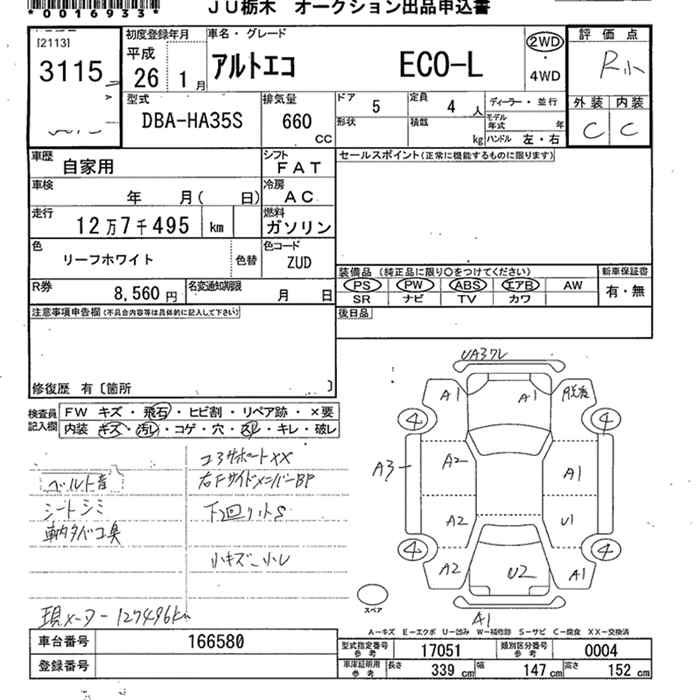 *00016933*
JU栃木 オークション出品申込書
[2113]
3115
初度登録年月
平成
26 1月
車名・グレード
アルトエコ ECO-L
2WD
・
4WD
評価点
R
外装 内装
C C
型式
DBA-HA35S
排気量
660
CC
ドア
5
定員
4人
ディーラー・並行
形状
積載
kg
モデル年式
年
ハンドル 左・右
車歴
自家用
シフト
FAT
セールスポイント(正常に機能するものに限ります)
車検
年 月( 日)
冷房
AC
走行
12万7千495 km
燃料
ガソリン
色
リーフホワイト
色替
色コード
ZUD
装備品(純正品に限り○をつけてください)
新車保証書
PS PW ABS エアB AW
SR ナビ TV カワ
有・無
R券
8,560円
名変通知期限
月 日
後日品
注意事項申告欄(不具合内容等は具体的に記入して下さい)
修復歴 有〔箇所 〕
検査員記入欄
FW キズ・飛石・ヒビ割・リペア跡・×要
内装 キズ・汚レ・コゲ・穴・スレ・キレ・破レ
コアサポートXX
ベルト音
右FサイドメンバーBP
シートシミ
下回りサS
車内タバコ臭
小キズ、小U
現メーター127496km
A1 A1
4 4
A3 A2 A1
A2 U1
4 4
A2 U2 A1
A1
スペア
A-キズ E-エクボ U-凹み W-補修跡 S-サビ C-腐食 XX-交換済
車台番号 166580
登録番号
型式指定番号 参考 17051
類別区分番号 参考 0004
車庫証明用 参考 長さ 339cm 幅 147cm 高さ 152cm